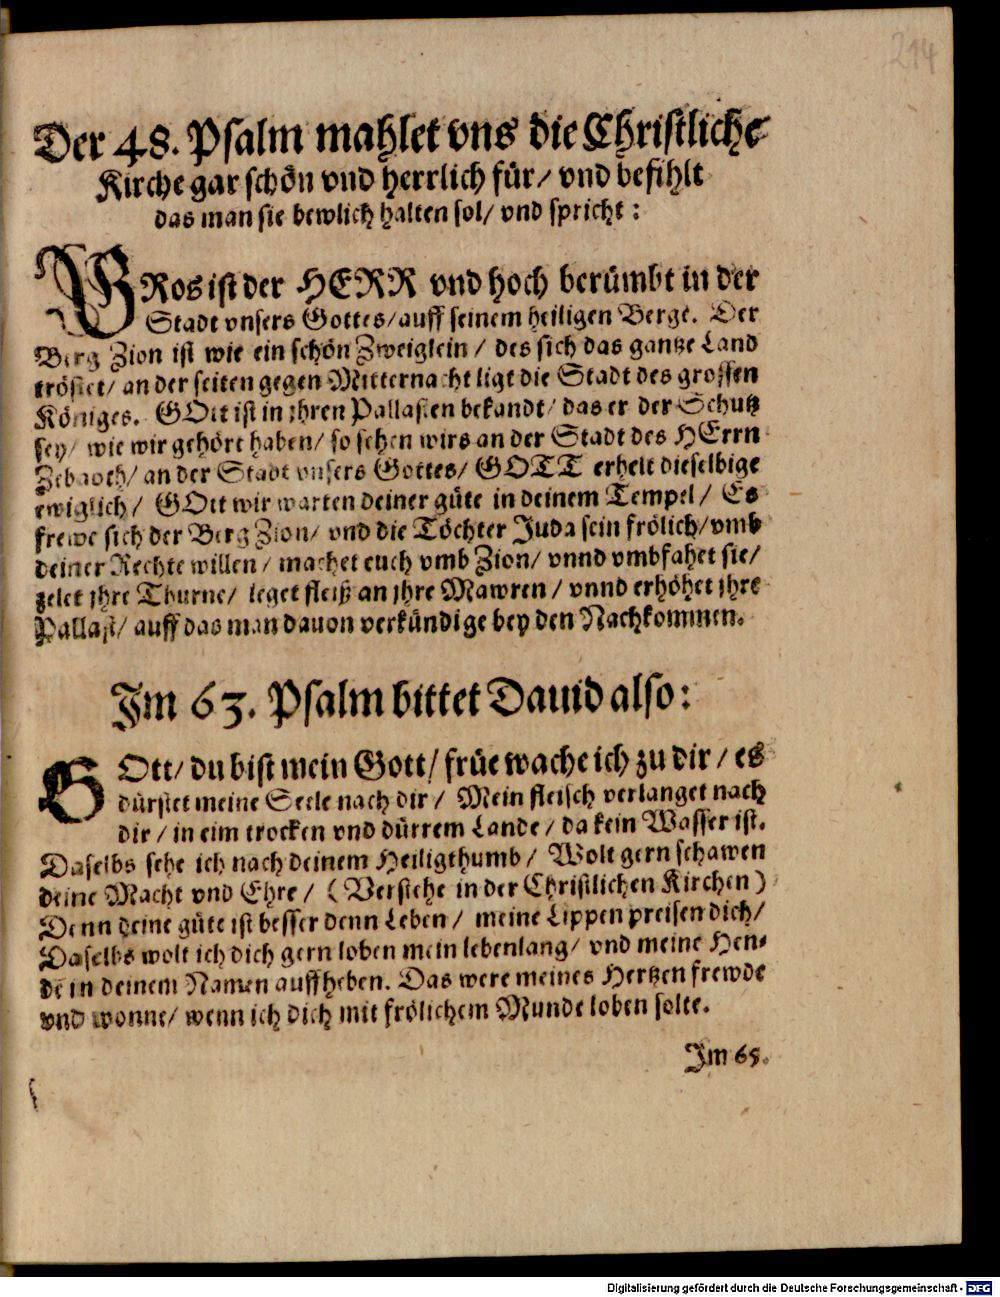 214
Der 48. Psalm mahlet vns die Christliche
Kirche gar schön vnd herrlich für/ vnd befihlt
das man sie bewlich halten sol/ vnd spricht:
GRos ist der HERR vnd hoch berümbt in der
Stadt vnsers Gottes/ auff seinem heiligen Berge. Der
Berg Zion ist wie ein schön Zweiglein / des sich das gantze Land
tröstet/ an der seiten gegen Mitternacht ligt die Stadt des grossen
Königes. GOtt ist in jhren Pallasten bekandt/ das er der Schutz
sey/ wie wir gehört haben/ so sehen wirs an der Stadt des HErrn
Zebaoth/ an der Stadt vnsers Gottes/ GOTT erhelt dieselbige
ewiglich/ GOtt wir warten deiner güte in deinem Tempel/ Es
frewe sich der Berg Zion/ vnd die Töchter Juda sein frölich/ vmb
deiner Rechte willen/ machet euch vmb Zion/ vnnd vmbfahet sie/
zelet jhre Thurne/ leget fleiß an jhre Mawren/ vnnd erhöhet jhre
Pallast/ auff das man dauon verkündige bey den Nachkommen.
Im 63. Psalm bittet Dauid also:
GOtt/ du bist mein Gott/ früe wache ich zu dir/ es
dürstet meine Seele nach dir/ Mein fleisch verlanget nach
dir/ in eim trocken vnd dürrem Lande/ da kein Wasser ist.
Daselbs sehe ich nach deinem Heiligthumb/ Wolt gern schawen
deine Macht vnd Ehre/ (Verstehe in der Christlichen Kirchen)
Denn deine güte ist besser denn Leben/ meine Lippen preisen dich/
Daselbs wolt ich dich gern loben mein lebenlang/ vnd meine Hen-
de in deinem Namen auffheben. Das were meines Hertzen frewde
vnd wonne/ wenn ich dich mit frölichem Munde loben solte.
Im 65.
Digitalisierung gefördert durch die Deutsche Forschungsgemeinschaft - DFG